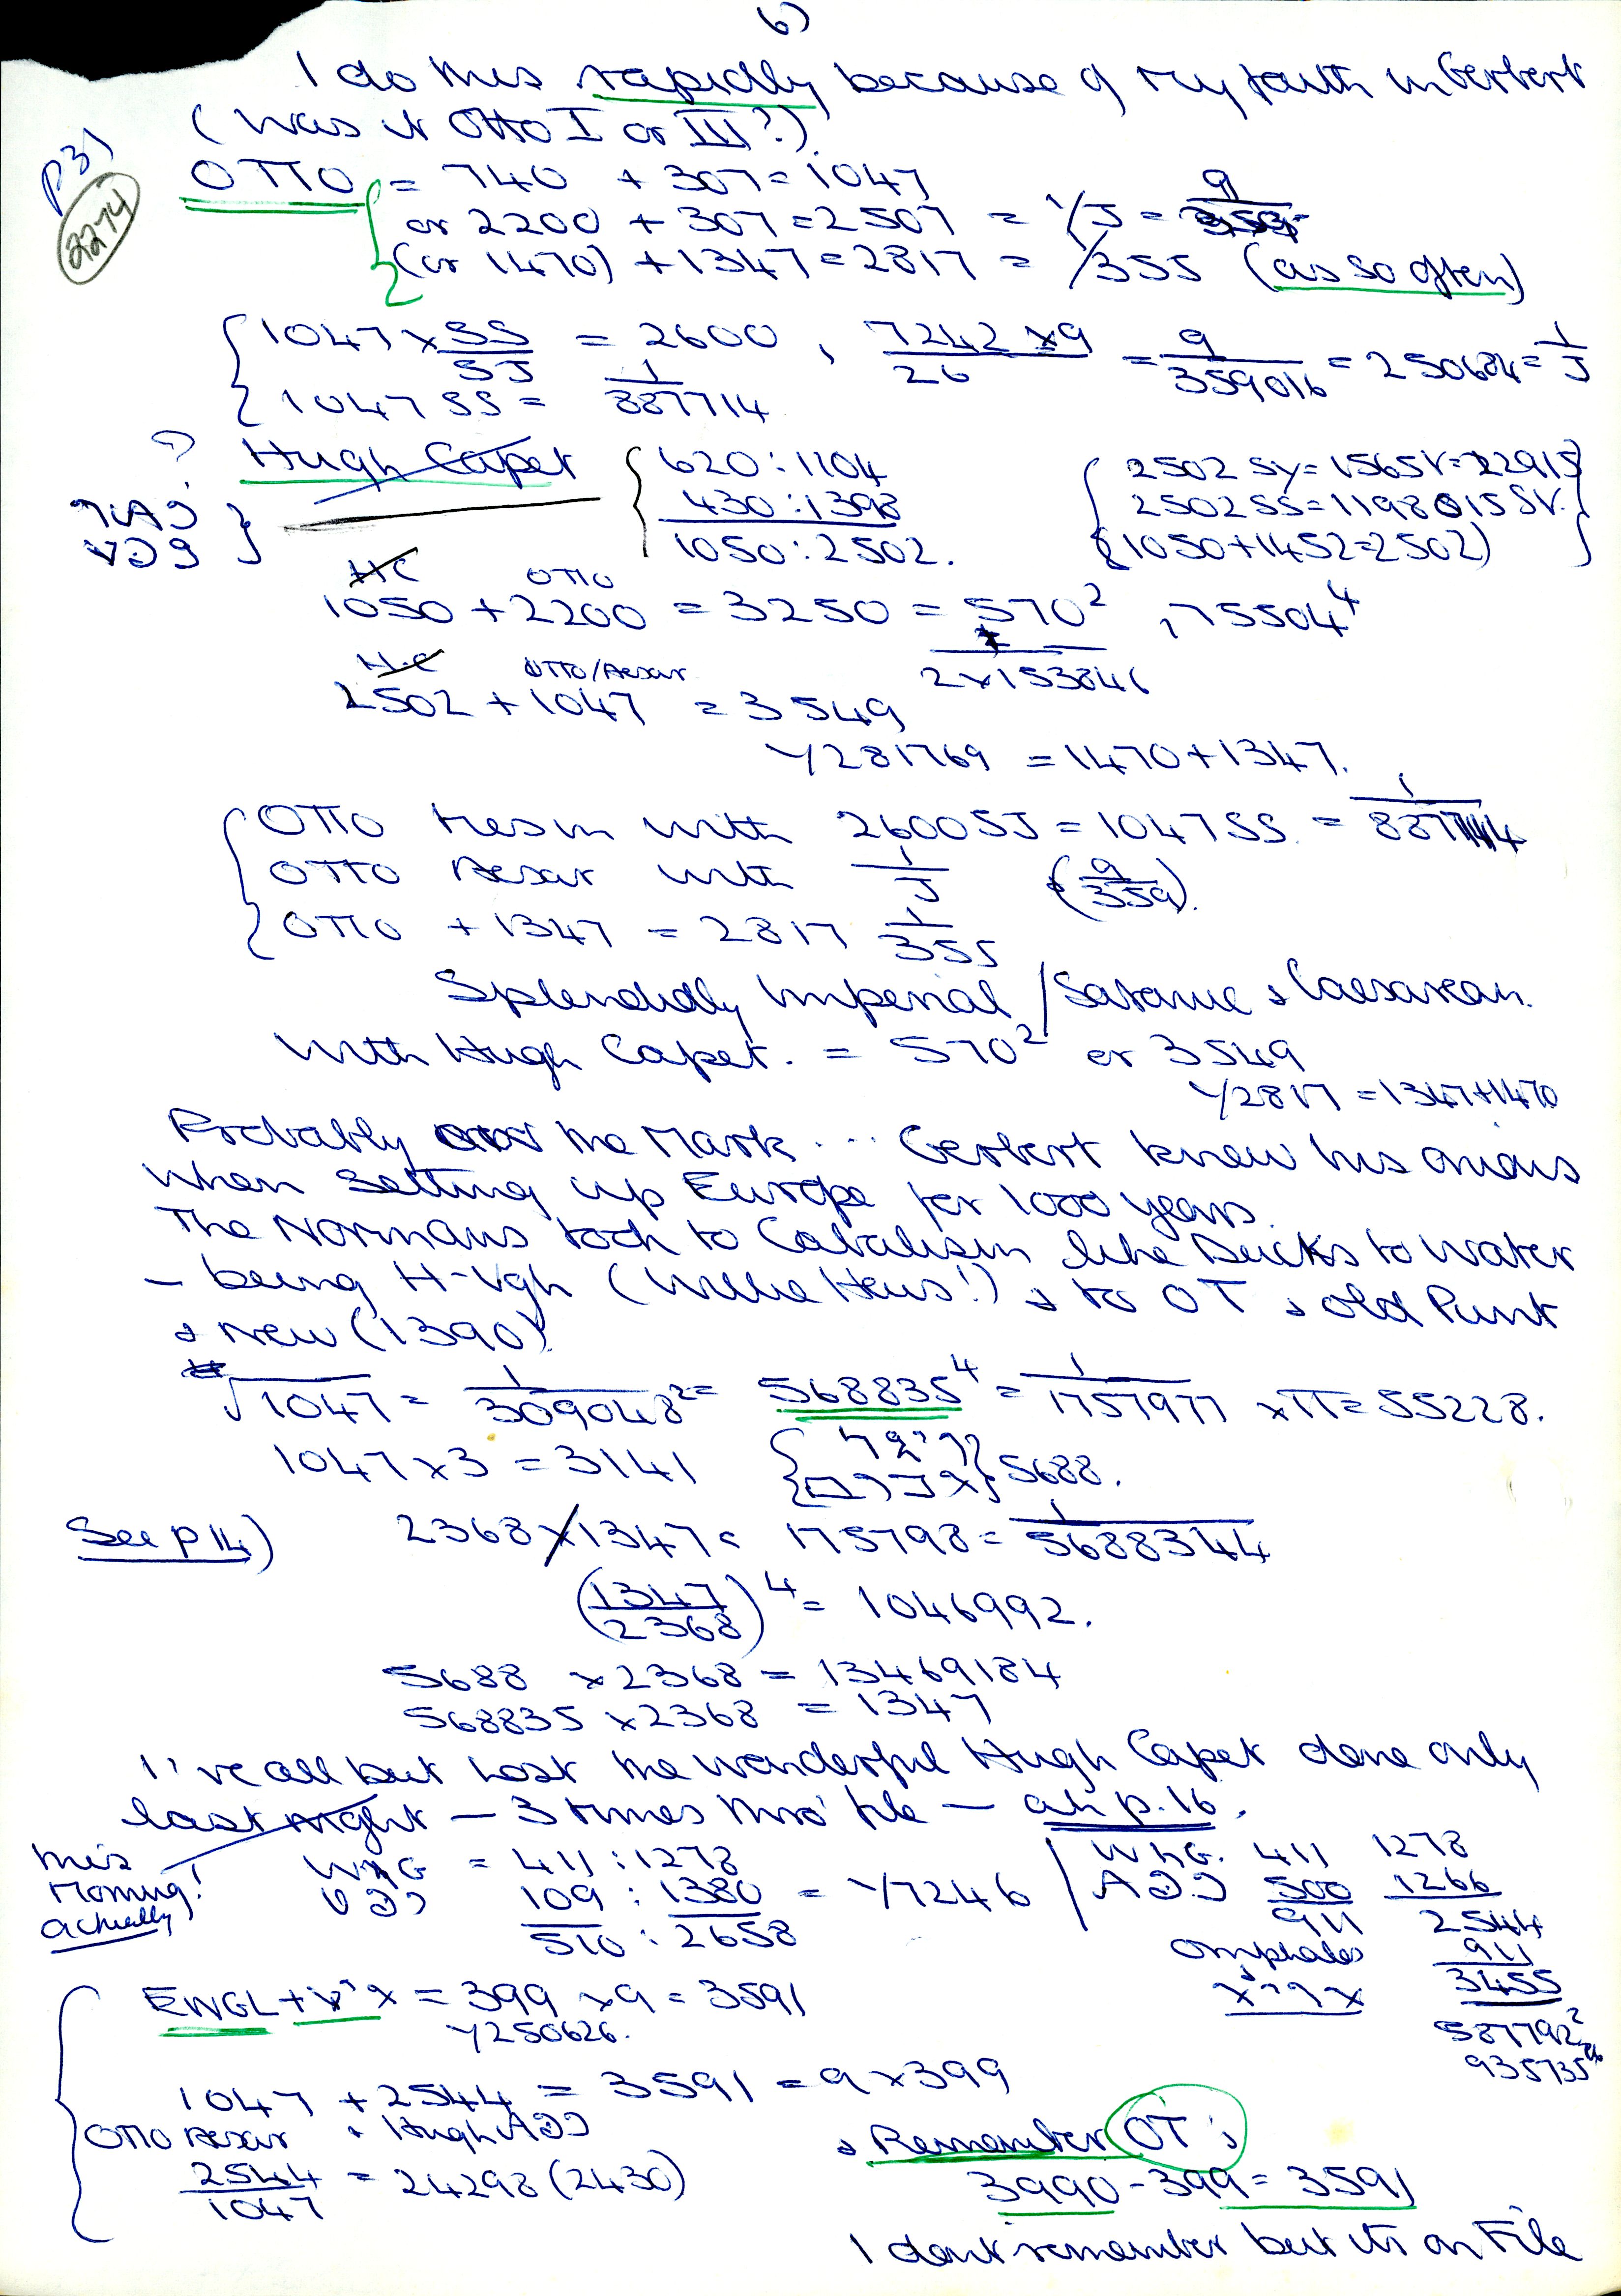 6)
I do this rapidly because of my faith in Gerbert
(Was it Otto I or III?)
p3)
2274
OTTO = 740 + 307 = 1047
or 2200 + 307 = 2507 = 1/J = 9
(or 1470) + 1347 = 2817 = /355 (as so often)
1047 x SS/SJ = 2600, 7242 x 9/26 = 9/359016 = 250684 = 1/J
1047 SS = 1/887714
? Hugh Capet { 620 : 1104
430 : 1398
1050 : 2502.
{ 2502 Sy = 1565 V = 22915 }
2502 SS = 1198015 SV.
(1050 + 1452 = 2502)
HC OTTO
1050 + 2200 = 3250 = 570², 75504⁴
2 x 153846
H.C OTTO/Aesar
2502 + 1047 = 3549
√281769 = 1470 + 1347.
OTTO Mesin with 2600 SJ = 1047 SS = 1/887714
OTTO Aesar with 1/J (9/359).
OTTO + 1347 = 2817 1/355
Splendidly Imperial / Satanic & Caesarean.
With Hugh Capet. = 570² or 3549
√2817 = 1347 + 1470
Probably the Mark ... Gerbert knew his onions
when setting up Europe for 1000 years.
The Normans took to Cabalism like Ducks to Water
– being H-Vgh (Willie Hews!) & to OT & old Punt
& New (1390)
√1047 = 1/309048² = 568835⁴ = 1/1757977 x π = 55228.
1047 x 3 = 3141 5688.
See p 14) 2368 x 1347 = 175798 = 1/5688344
(1347/2368)⁴ = 1046992.
5688 x 2368 = 13469184
568835 x 2368 = 1347
I've all but lost the wonderful Hugh Capet done only
last night – 3 times thro' file – ah p. 16.
this Morning! actually
= 411 : 1278
109 : 1380 = √7246
510 : 2658
411 1278
500 1266
911 2544
Omphalos 911
3455
587792²
935735
ENGL + = 399 x 9 = 3591
√250626.
1047 + 2544 = 3591 = 9 x 399
OTTO Aesar & Hugh
2544/1047 = 24298 (2430)
& Remember OT &
3990 - 399 = 3591
I dont remember but its on File